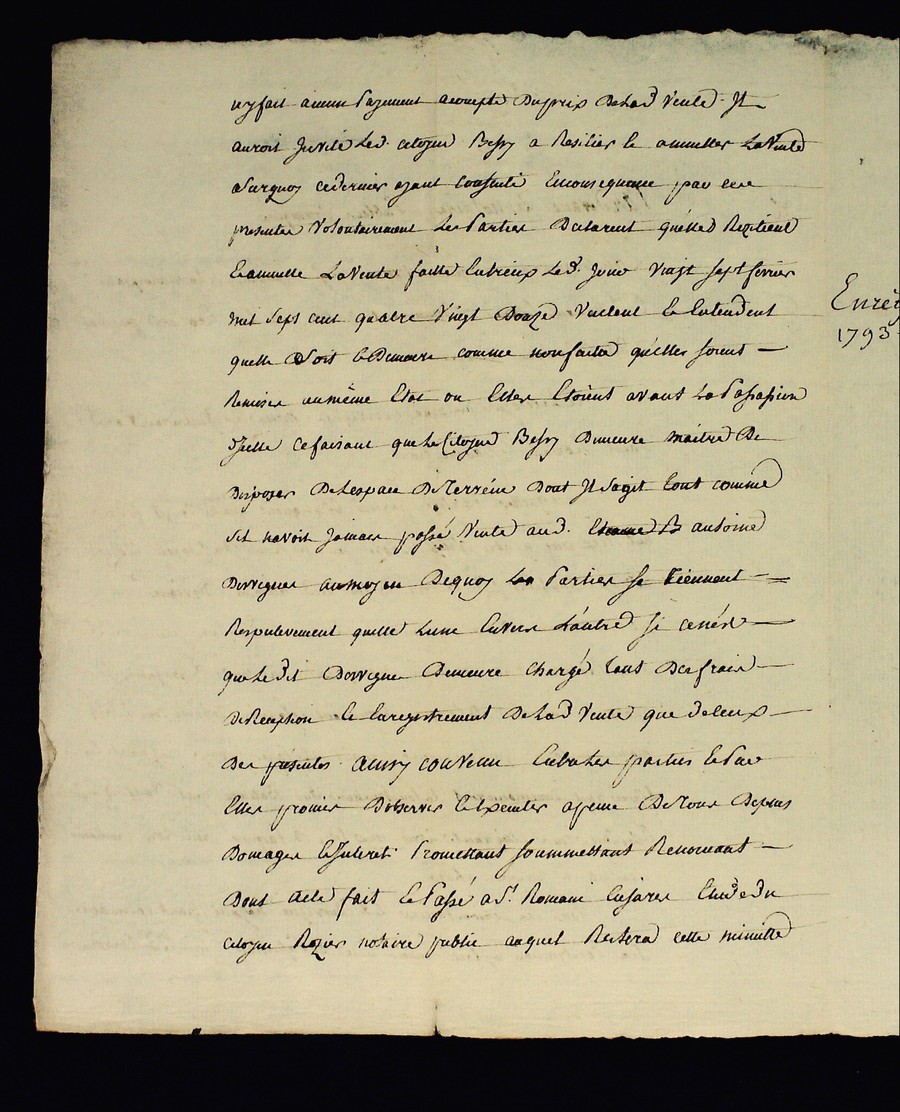 ny fait aucun payement acompte du prix de lad vente. Il
auroit invité led. citoyen Bessy a Resilier & annuller la vente
a surquoy ce dernier ayant consenti En consequence par ces
presentes volontairement les parties declarent quelles Rezilient
& annulle la vente faitte entreux led. jour vingt sept fevrier
mil sept cent quatre vingt douze veulent & entendent
quelle soit & demeure comme non faitte quelles soient
Remises au même Etat ou Elles Etoient avant la passassion
dicelle ce faisant que le citoyen Bessy demeure maitre de
disposer de lespace de terrein dont il sagit tout comme
sil navoit jamais passé vente aud. antoine
au moyen dequoy les parties se tiennent
Respectivement quitte lune envers lautre si ce nest
que ledit demeure chargé tant des frais
de Reception & enregistrement de lad vente que de ceux
des presentes ainsy convenu entre les parties & par
Elles promis dobserver & executer a peine de tous depens
domages & interets promettant soummettant Renonceant
dont acte fait & passé a St. Romain en jarez Etude du
citoyen Rozier notaire public auquel Restera cette minutte
Enreg
1793